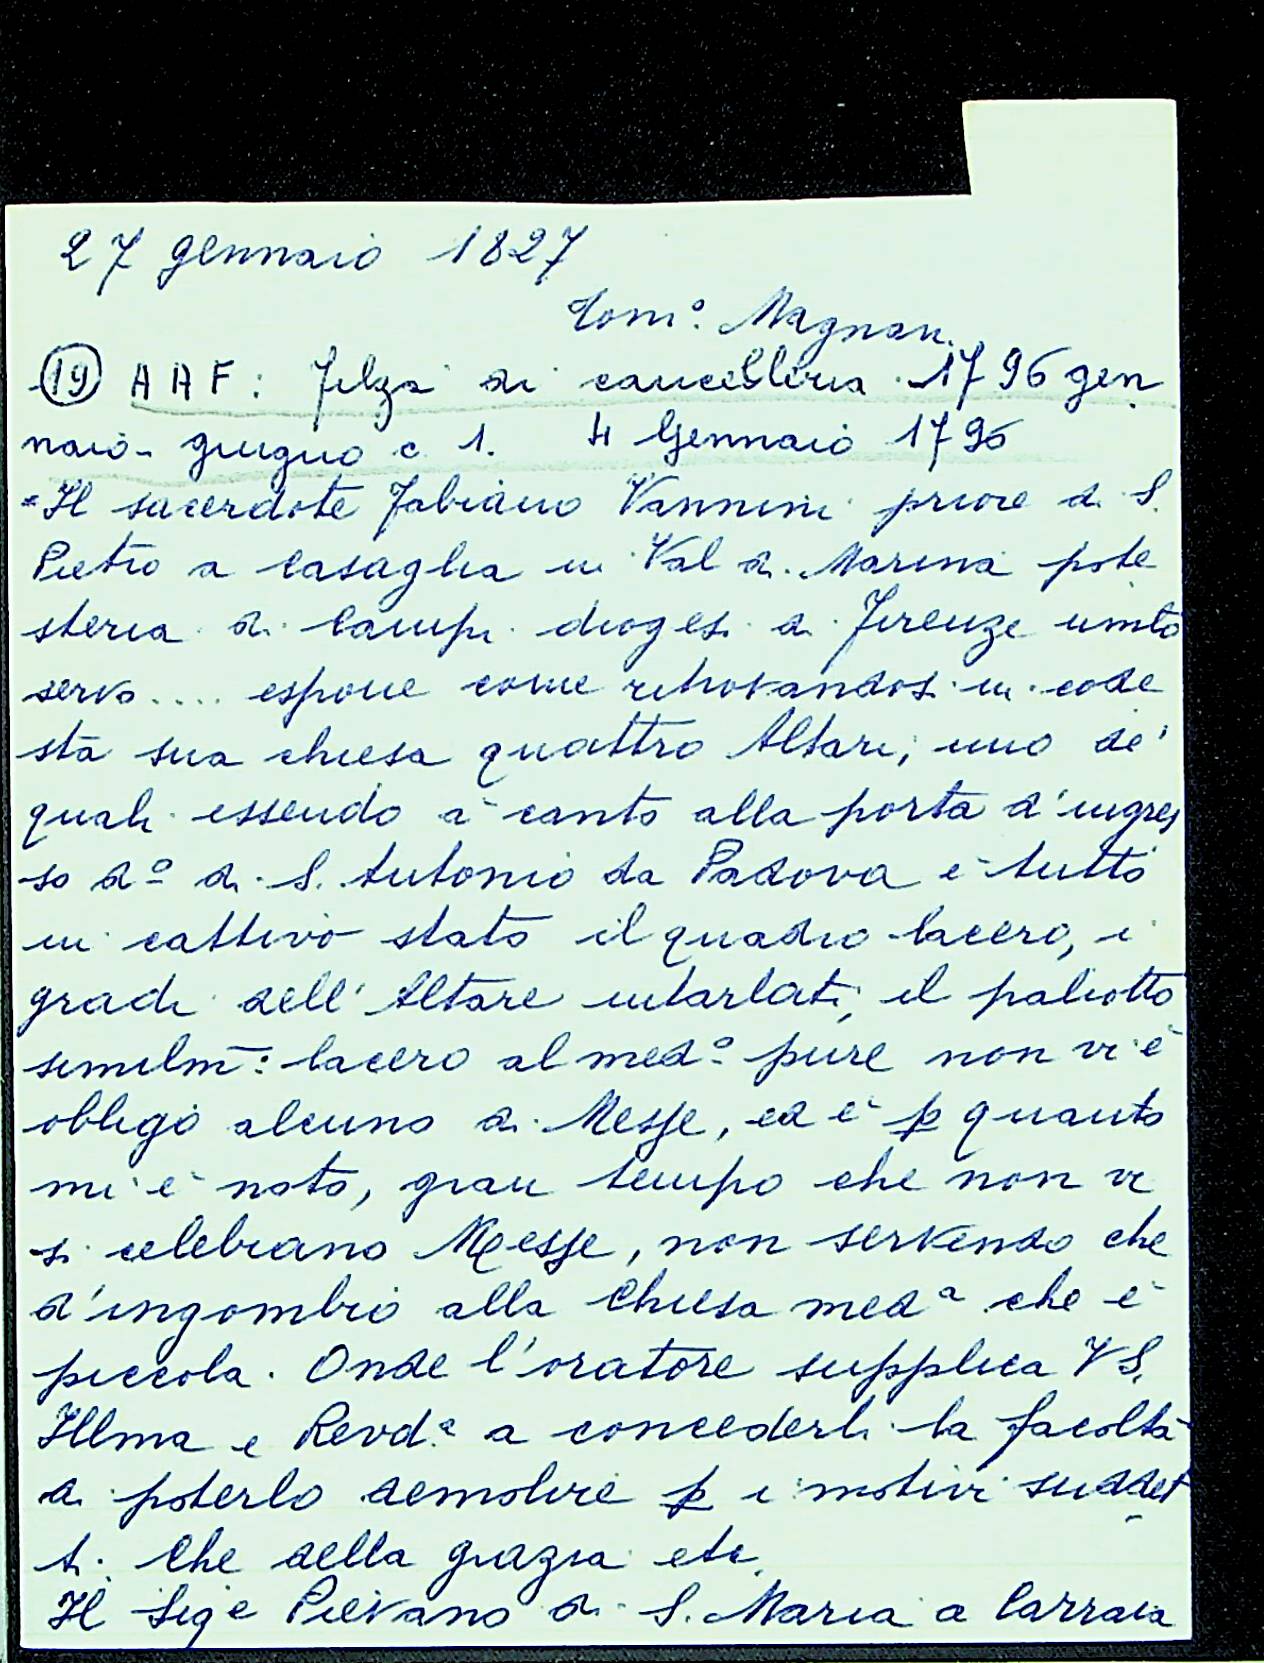 27 gennaio 1827
Tom.º Magnan.
(19) A A F: Filza di cancelleria 1796 gen
naio-giugno c 1. 4 Gennaio 1796
"Il sacerdote Fabiano Vannini priore di S.
Pietro a Casaglia in Val di Marina pote
steria di Campi diogesi di Firenze umto
servo .... espone come ritrovandosi in code
sta sua chiesa quattro Altari, uno de'
quali essendo a canto alla porta d'ingres
so dº di S. Antonio da Padova è tutto
in cattivo stato il quadro lacero, i
gradi dell'Altare intarlati, il paliotto
similm: lacero al medº pure non vi è
obbligo alcuno di Messe, ed è p quanto
mi è noto, gran tempo che non vi
si celebrano Messe, non servendo che
d'ingombro alla Chiesa medª che è
piccola. Onde l'oratore supplica VS.
Illma e Revdª a concederli la facoltà
di poterlo demolire p i motivi suddet
ti. Che della grazia etc.
Il Sigе Pievano di S. Maria a Carraia